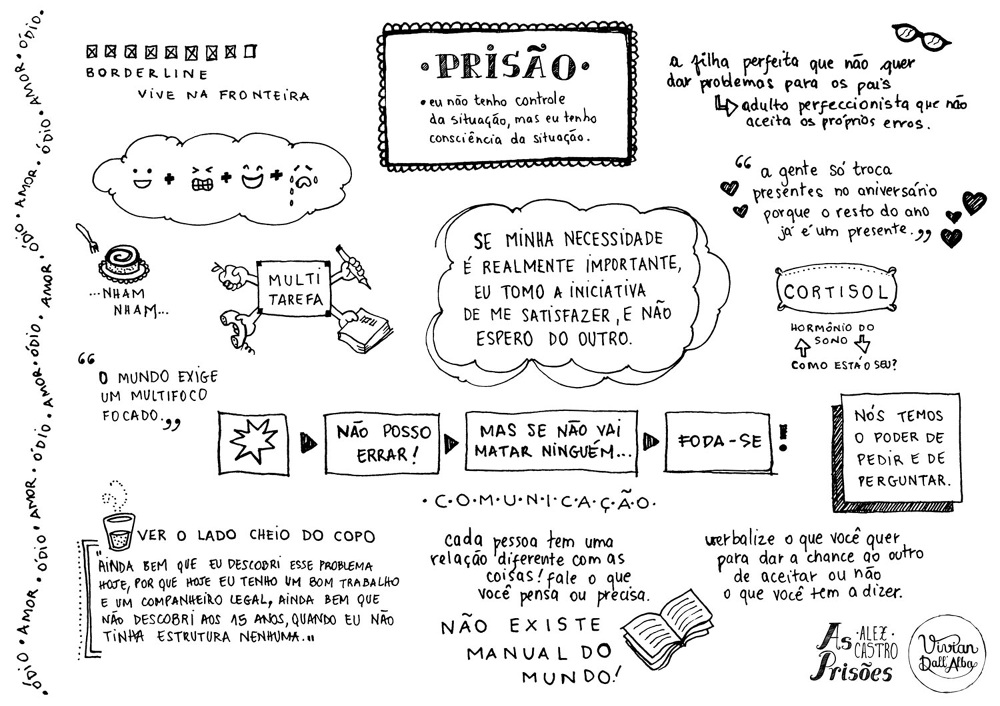 ÓDIO. AMOR. ÓDIO. AMOR. ÓDIO. AMOR. ÓDIO. AMOR. ÓDIO. AMOR. ÓDIO. AMOR. ÓDIO.
BORDERLINE
VIVE NA FRONTEIRA
...NHAM
NHAM...
MULTI
TAREFA
“O MUNDO EXIGE
UM MULTIFOCO
FOCADO.”
• PRISÃO •
• eu não tenho controle
da situação, mas eu tenho
consciência da situação.
a filha perfeita que não quer
dar problemas para os pais
adulto perfeccionista que não
aceita os próprios erros.
“a gente só troca
presentes no aniversário
porque o resto do ano
já é um presente.”
SE MINHA NECESSIDADE
É REALMENTE IMPORTANTE,
EU TOMO A INICIATIVA
DE ME SATISFAZER, E NÃO
ESPERO DO OUTRO.
CORTISOL
HORMÔNIO DO
SONO
COMO ESTÁ O SEU?
NÃO POSSO
ERRAR!
MAS SE NÃO VAI
MATAR NINGUÉM...
FODA-SE
!
NÓS TEMOS
O PODER DE
PEDIR E DE
PERGUNTAR.
VER O LADO CHEIO DO COPO
"AINDA BEM QUE EU DESCOBRI ESSE PROBLEMA
HOJE, POR QUE HOJE EU TENHO UM BOM TRABALHO
E UM COMPANHEIRO LEGAL, AINDA BEM QUE
NÃO DESCOBRI AOS 15 ANOS, QUANDO EU NÃO
TINHA ESTRUTURA NENHUMA..."
•C•O•M•U•N•I•C•A•Ç•Ã•O•
cada pessoa tem uma
relação diferente com as
coisas! fale o que
você pensa ou precisa.
NÃO EXISTE
MANUAL DO
MUNDO!
verbalize o que você quer
para dar a chance ao outro
de aceitar ou não
o que você tem a dizer.
As Prisões
•ALEX•
CASTRO
Vivian
Dall'Alba